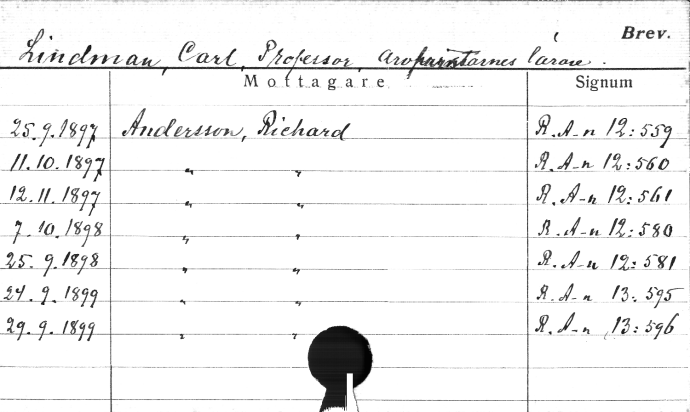 Brev.
Lindman, Carl, Professor, lärare.
Mottagare Signum
25.9.1897 Andersson, Richard R.A-n 12:559
11.10.1897 " " R.A-n 12:560
12.11.1897 " " R.A-n 12:561
7.10.1898 " " R.A-n 12:580
25.9.1898 " " R.A-n 12:581
24.9.1899 " " R.A-n 13:595
29.9.1899 " " R.A-n 13:596